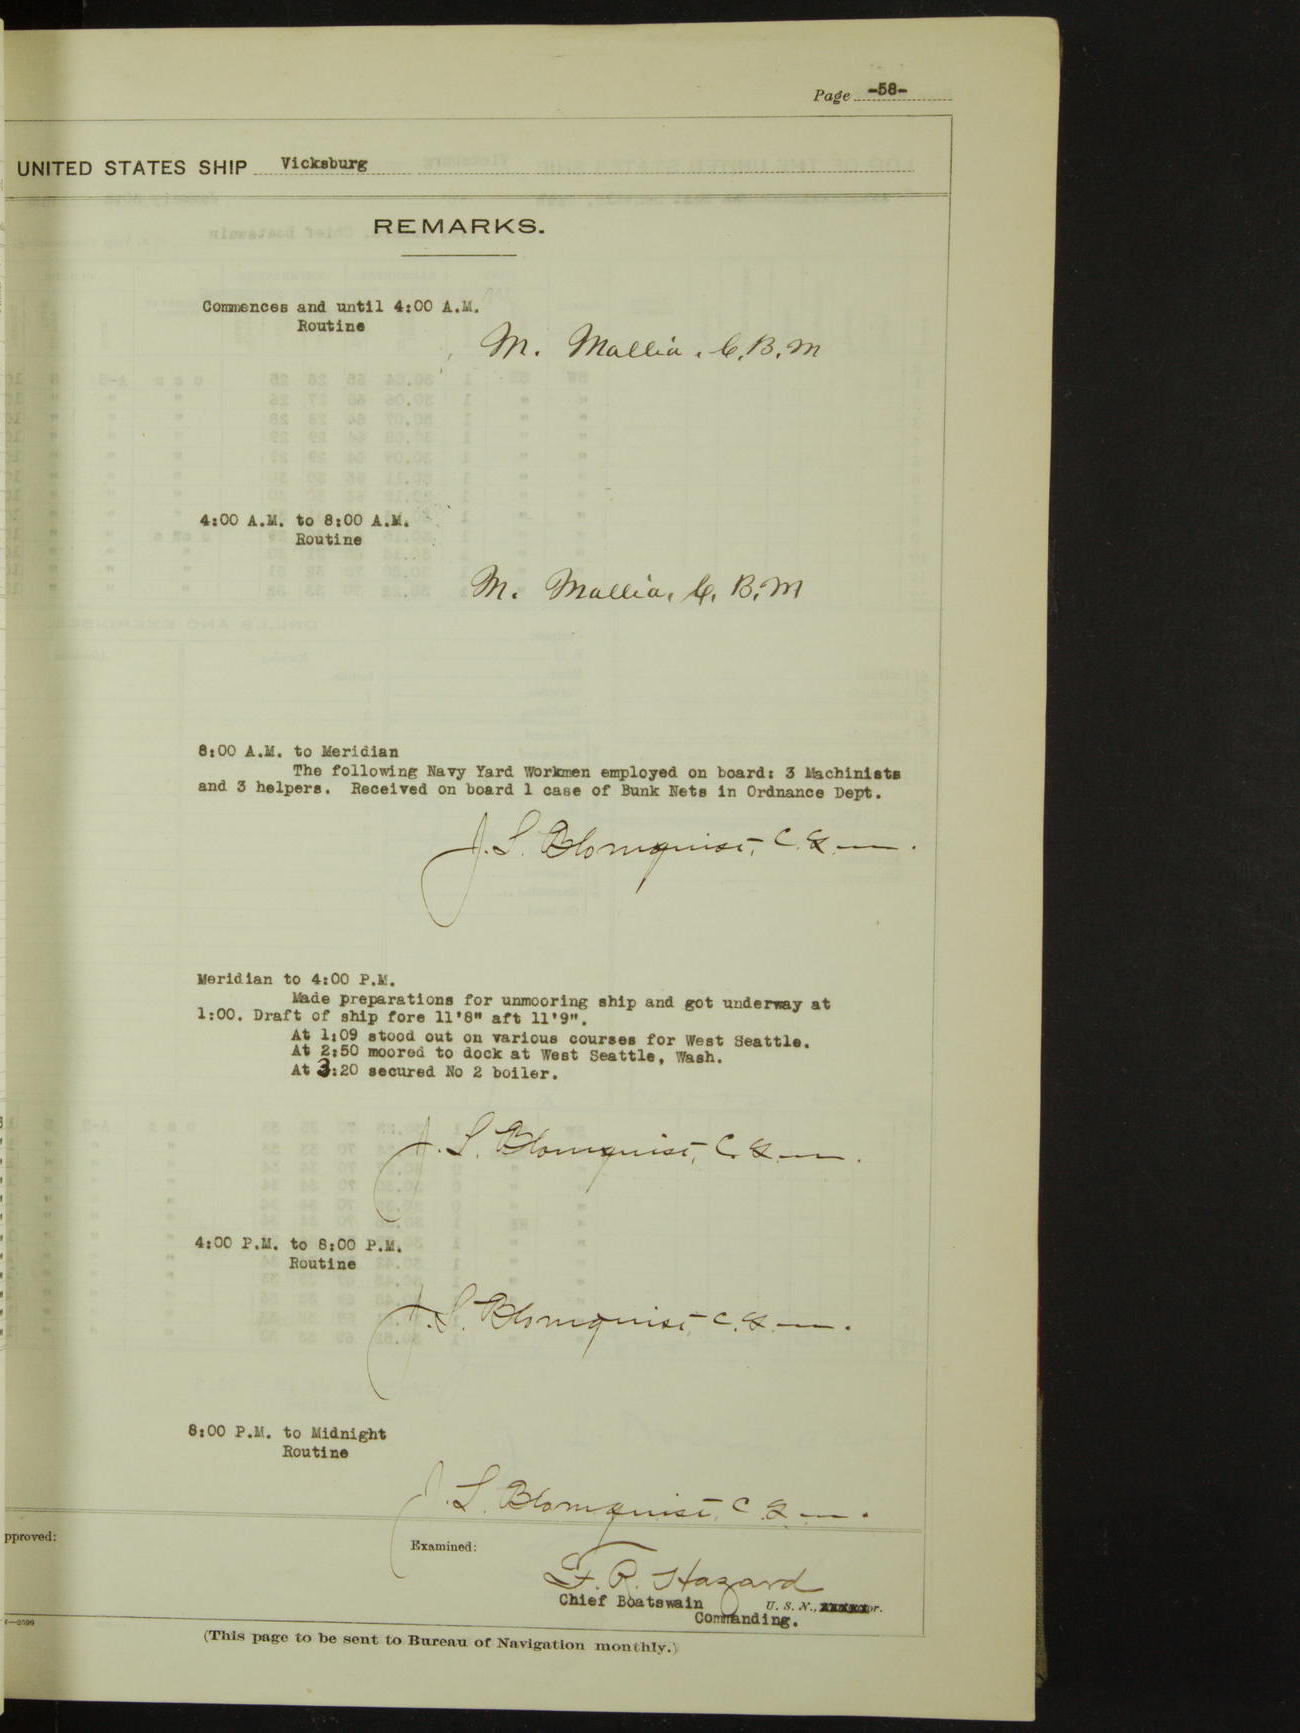 Page -58-
UNITED STATES SHIP Vicksburg
REMARKS.
Commences and until 4:00 A.M.
Routine
M. Mallia. C.B.M
4:00 A.M. to 8:00 A.M.
Routine
M. Mallia, C.B.M
8:00 A.M. to Meridian
The following Navy Yard Workmen employed on board: 3 Machinists
and 3 helpers. Received on board 1 case of Bunk Nets in Ordnance Dept.
J. S. Blomquist, C. G. m.
Meridian to 4:00 P.M.
Made preparations for unmooring ship and got underway at
1:00. Draft of ship fore 11'8" aft 11'9".
At 1:09 stood out on various courses for West Seattle.
At 2:50 moored to dock at West Seattle, Wash.
At 3:20 secured No 2 boiler.
J. S. Blomquist, C. G. m.
4:00 P.M. to 8:00 P.M.
Routine
J. S. Blomquist, C. G. m.
8:00 P.M. to Midnight
Routine
J. S. Blomquist, C. G. m.
pproved:
Examined:
F. R. Hazard
Chief Boatswain U. S. N.,
Commanding.
(This page to be sent to Bureau of Navigation monthly.)